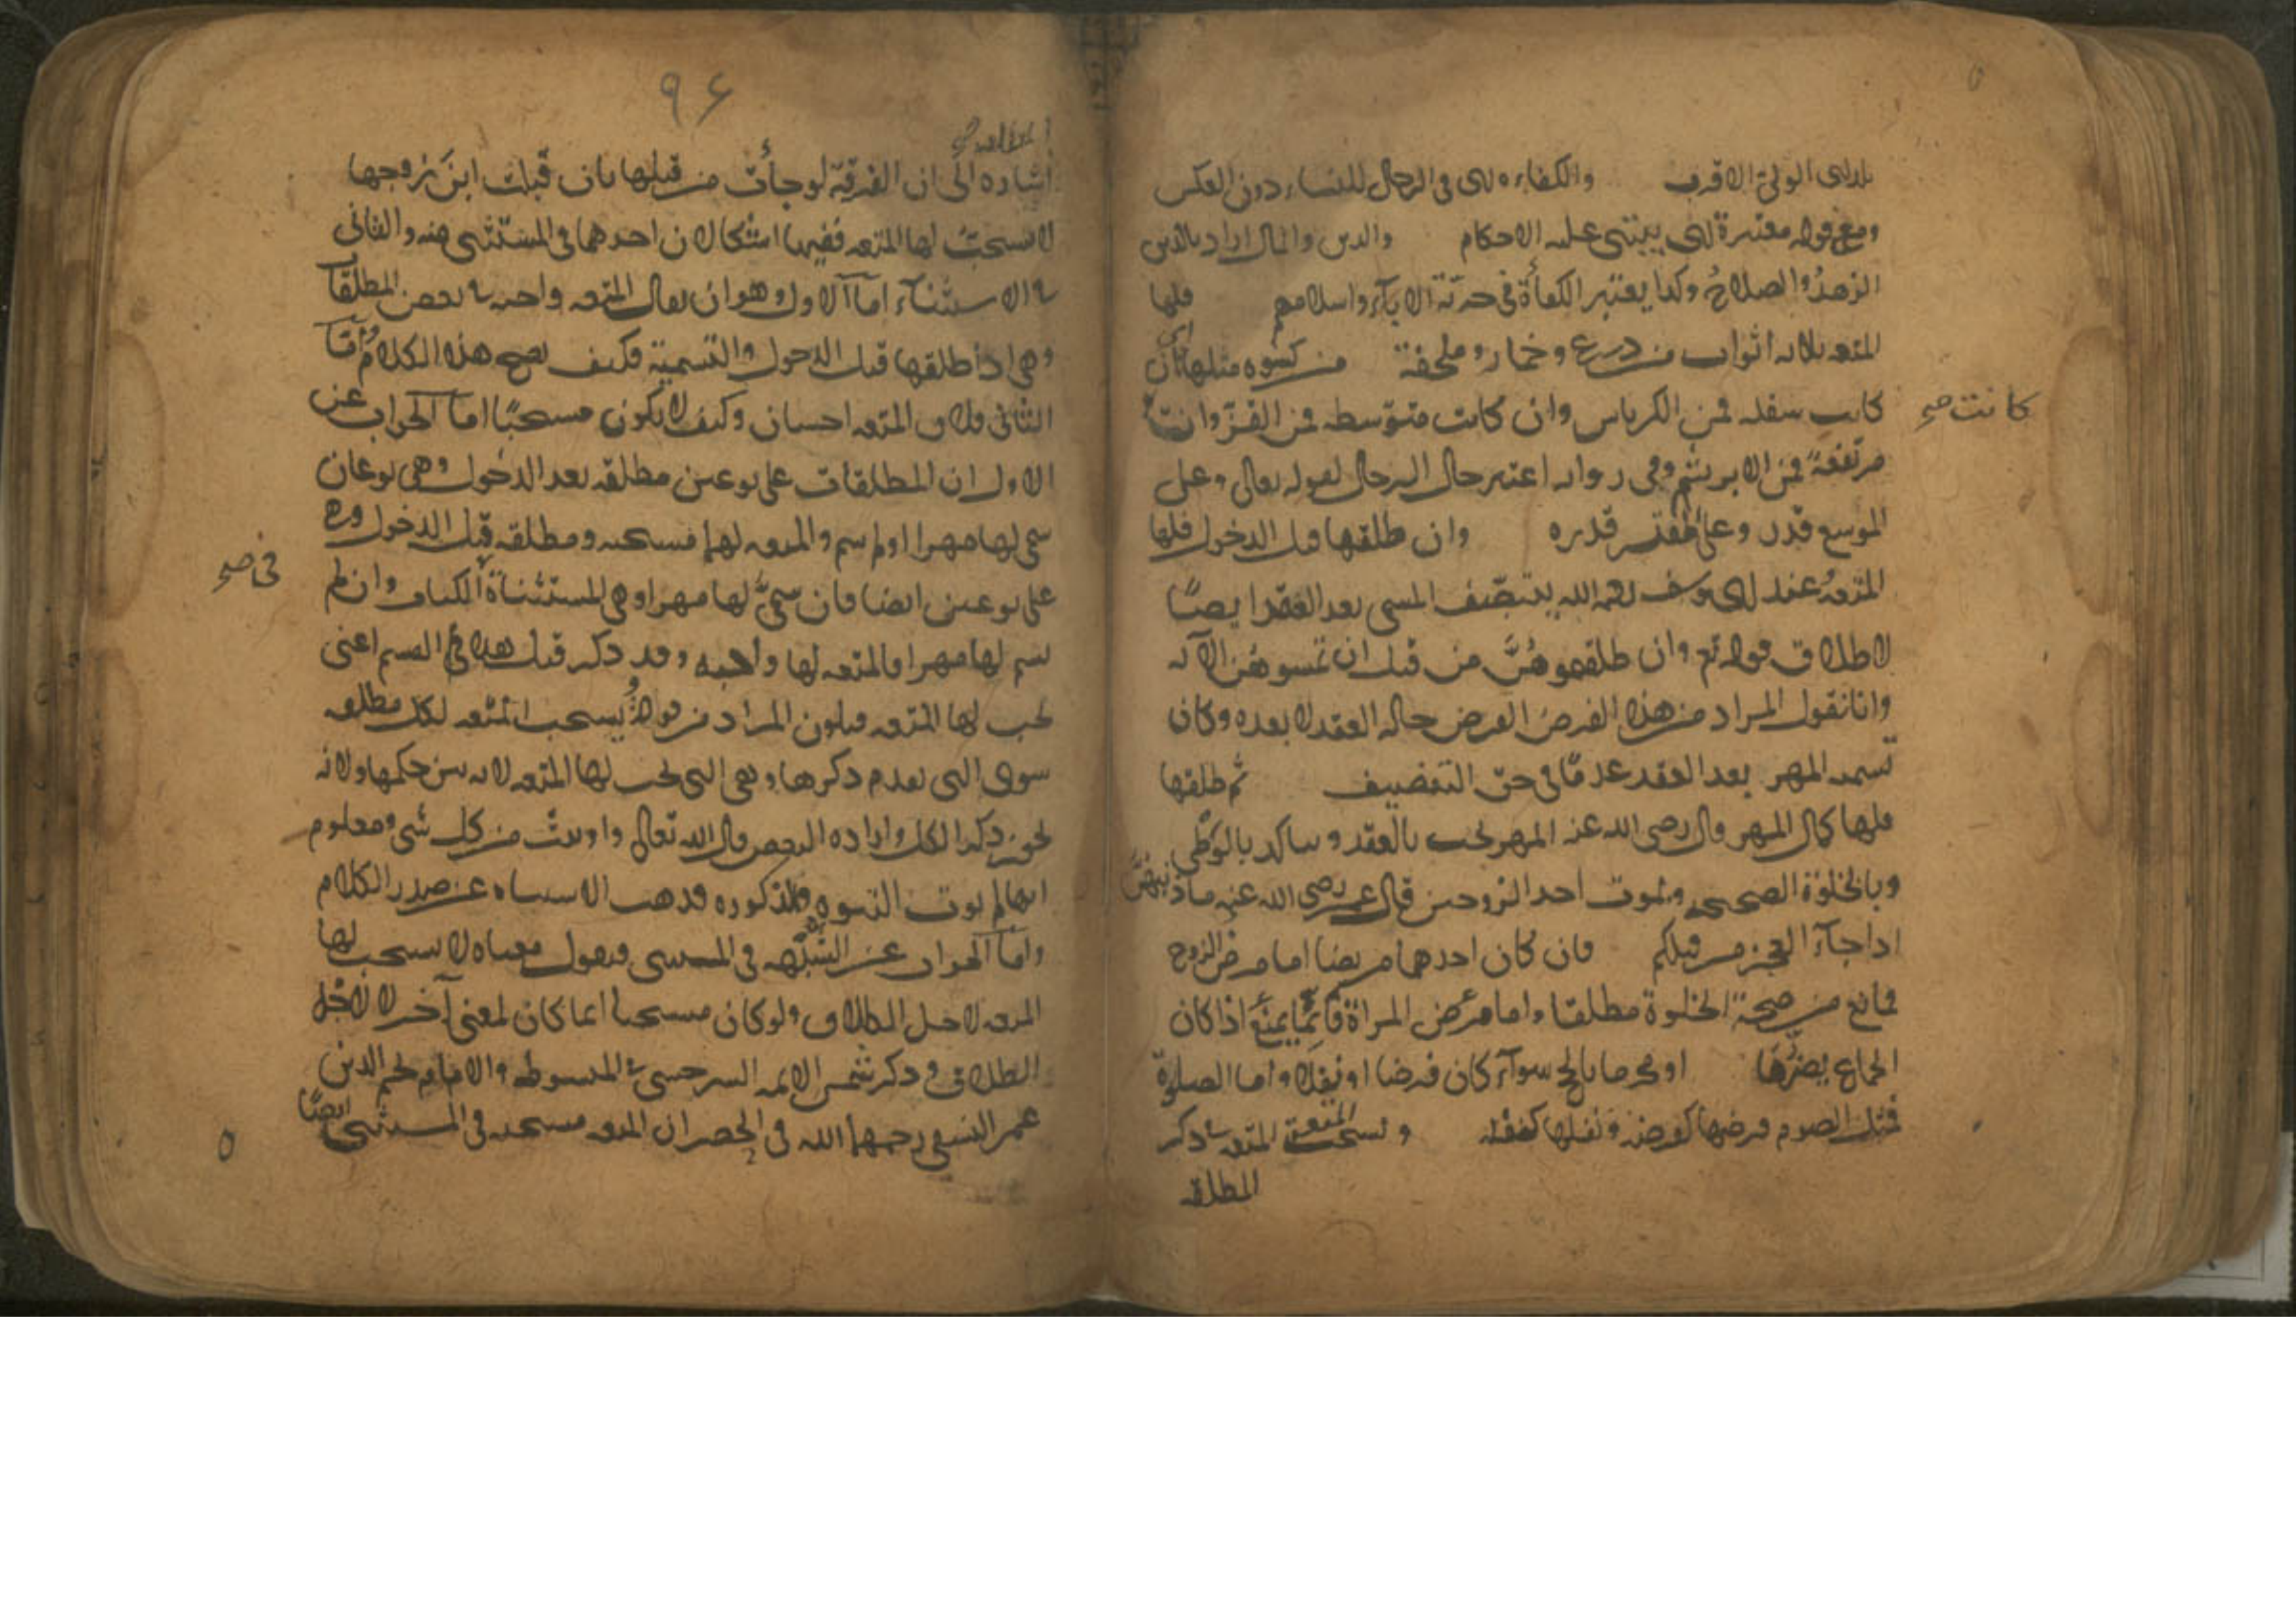 الولي الاقرب والكفاءه اى فى الرجال للنساء دون العكس
ومع قوله معتبرة اى يبتنى عليه الاحكام والدين والمال اراد بالدين
الزهد والصلاح وكذا يعتبر الكفأة فى حرية الآباء واسلامهم فلها
المتعه ثلاثه اثواب من درع وخمار وملحفة من كسوه مثلها اى ان
كانت سفله فمن الكرباس وان كانت متوسطه فمن القز وان
كانت صح
مرتفعة فمن الابريشم وفى روايه اعتبر حال الرجال لقوله تعالى وعلى
الموسع قدره وعلى المقتر قدره وان طلقها قبل الدخول فلها
المتعة عند ابى يوسف رحمه الله يتنصف المسمى بعد العقد ايضا
لاطلاق قوله تع وان طلقتموهن من قبل ان تمسوهن الآيه
وانا نقول المراد من هذه الفرض الفرض حاله العقد لا بعده وكان
تسميه المهر بعد العقد عدما فى حق التنصيف ثم طلقها
فلها كمال المهر قال رضى الله عنه المهر يجب بالعقد ويتأكد بالوطى
وبالخلوة الصحيحه وبموت احد الزوجين قال عمر رضى الله عنه ماذنبهن
اذا جآء العجز من قبلكم فان كان احدهما مريضا اما مرض الزوج
فمانع من صحة الخلوة مطلقا واما مرض المراة فانما يمنع اذا كان
الجماع يضرها او محرما بالحج سوآء كان فرضا او نفلا واما الصلوة
فمثل الصوم فرضها كفرضه ونفلها كنفله وتستحب المتعة المتعه ذكر
المطلقه
٩٦
اشاره الى ان الفرقة لو جأت من قبلها بان قبلت ابن زوجها
لا تستحب لها المتعه ففيها اشكالان احدهما فى المستثنى منه والثانى
فى الاستثناء اما الاول وهو ان يقال المتعه واجبه فى بعض المطلقات
وهى اذا طلقها قبل الدخول والتسمية فكيف يصح هذا الكلام واما
الثانى فلان المتعه احسان وكيف لا يكون مستحبا اما الجواب عن
الاول ان المطلقات على نوعين مطلقه بعد الدخول وهى نوعان
سمى لها مهرا او لم يسم والمتعه لهما مستحبه ومطلقه قبل الدخول وهى
على نوعين ايضا فان سمى لها مهرا وهى المستثناة الكتاب وان لم
فى صح
يسم لها مهرا فالمتعه لها واجبه وقد ذكر قبل هذا فى القسم اعنى
يجب لها المتعه فيكون المراد من قوله يستحب المتعه لكل مطلقه
سوى التى تقدم ذكرها وهى التى يجب لها المتعه لانه بين حكمها ولانه
يجوز ذكر الكل واراده البعض قال الله تعالى واوتيت من كل شى ومعلوم
انها لم يؤت النبوه والذكوره فذهب الاشتباه عن صدر الكلام
واما الجواب عن الشبهه فى المستثنى فنقول معناه لا يستحب لها
المتعه لاجل الطلاق ولو كان مستحبا انما كان لمعنى آخر لا لاجل
الطلاق وذكر شمس الايمه السرخسى فى المبسوط والامام نجم الدين
عمر النسفى رحمهما الله فى الحصر ان المتعه مستحبه فى المستثنى ايضا